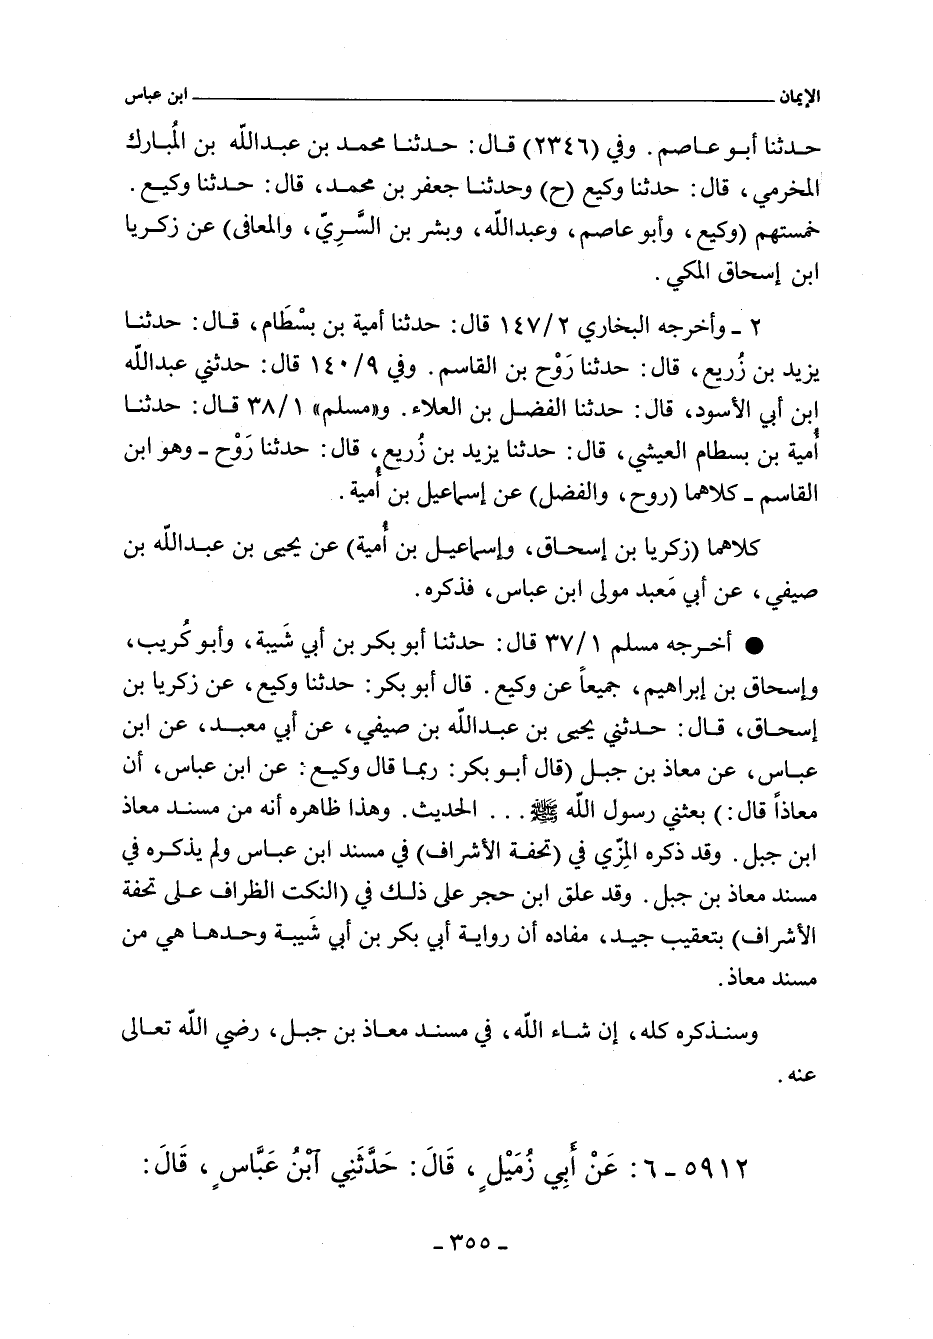 الإيمان ــــــ ابن عباس
حدثنا أبو عاصم. وفي (٢٣٤٦) قال: حدثنا محمد بن عبدالله بن المُبارك
المخرمي، قال: حدثنا وكيع (ح) وحدثنا جعفر بن محمد، قال: حدثنا وكيع.
خمستهم (وكيع، وأبو عاصم، وعبدالله، وبشر بن السَّرِيّ، والمعافى) عن زكريا
ابن إسحاق المكي.
٢ ـ وأخرجه البخاري ١٤٧/٢ قال: حدثنا أمية بن بِسْطَام، قال: حدثنا
يزيد بن زُريع، قال: حدثنا رَوْح بن القاسم. وفي ١٤٠/٩ قال: حدثني عبدالله
ابن أبي الأسود، قال: حدثنا الفضل بن العلاء. و«مسلم» ٣٨/١ قال: حدثنا
أُمية بن بسطام العيشي، قال: حدثنا يزيد بن زُريع، قال: حدثنا رَوْح ـ وهو ابن
القاسم ـ كلاهما (روح، والفضل) عن إسماعيل بن أُمية.
كلاهما (زكريا بن إسحاق، وإسماعيل بن أُمية) عن يحيى بن عبدالله بن
صيفي، عن أبي مَعبد مولى ابن عباس، فذكره.
● أخرجه مسلم ٣٧/١ قال: حدثنا أبو بكر بن أبي شَيبة، وأبو كُريب،
وإسحاق بن إبراهيم، جميعاً عن وكيع. قال أبو بكر: حدثنا وكيع، عن زكريا بن
إسحاق، قال: حدثني يحيى بن عبدالله بن صيفي، عن أبي معبد، عن ابن
عباس، عن معاذ بن جبل (قال أبو بكر: ربما قال وكيع: عن ابن عباس، أن
معاذاً قال:) بعثني رسول الله ﷺ... الحديث. وهذا ظاهره أنه من مسند معاذ
ابن جبل. وقد ذكره المِزّي في (تحفة الأشراف) في مسند ابن عباس ولم يذكره في
مسند معاذ بن جبل. وقد علق ابن حجر على ذلك في (النكت الظراف على تحفة
الأشراف) بتعقيب جيد، مفاده أن رواية أبي بكر بن أبي شَيبة وحدها هي من
مسند معاذ.
وسنذكره كله، إن شاء الله، في مسند معاذ بن جبل، رضي الله تعالى
عنه.
٥٩١٢ ـ ٦: عَنْ أَبِي زُمَيْلٍ، قَالَ: حَدَّثَنِي آبْنُ عَبَّاسٍ، قَالَ:
ـ ٣٥٥ ـ